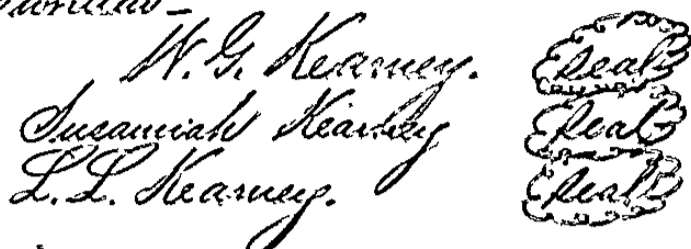 W. G. Kearney. Seal
Susanniah Kearney Seal
L. L. Kearney. Seal